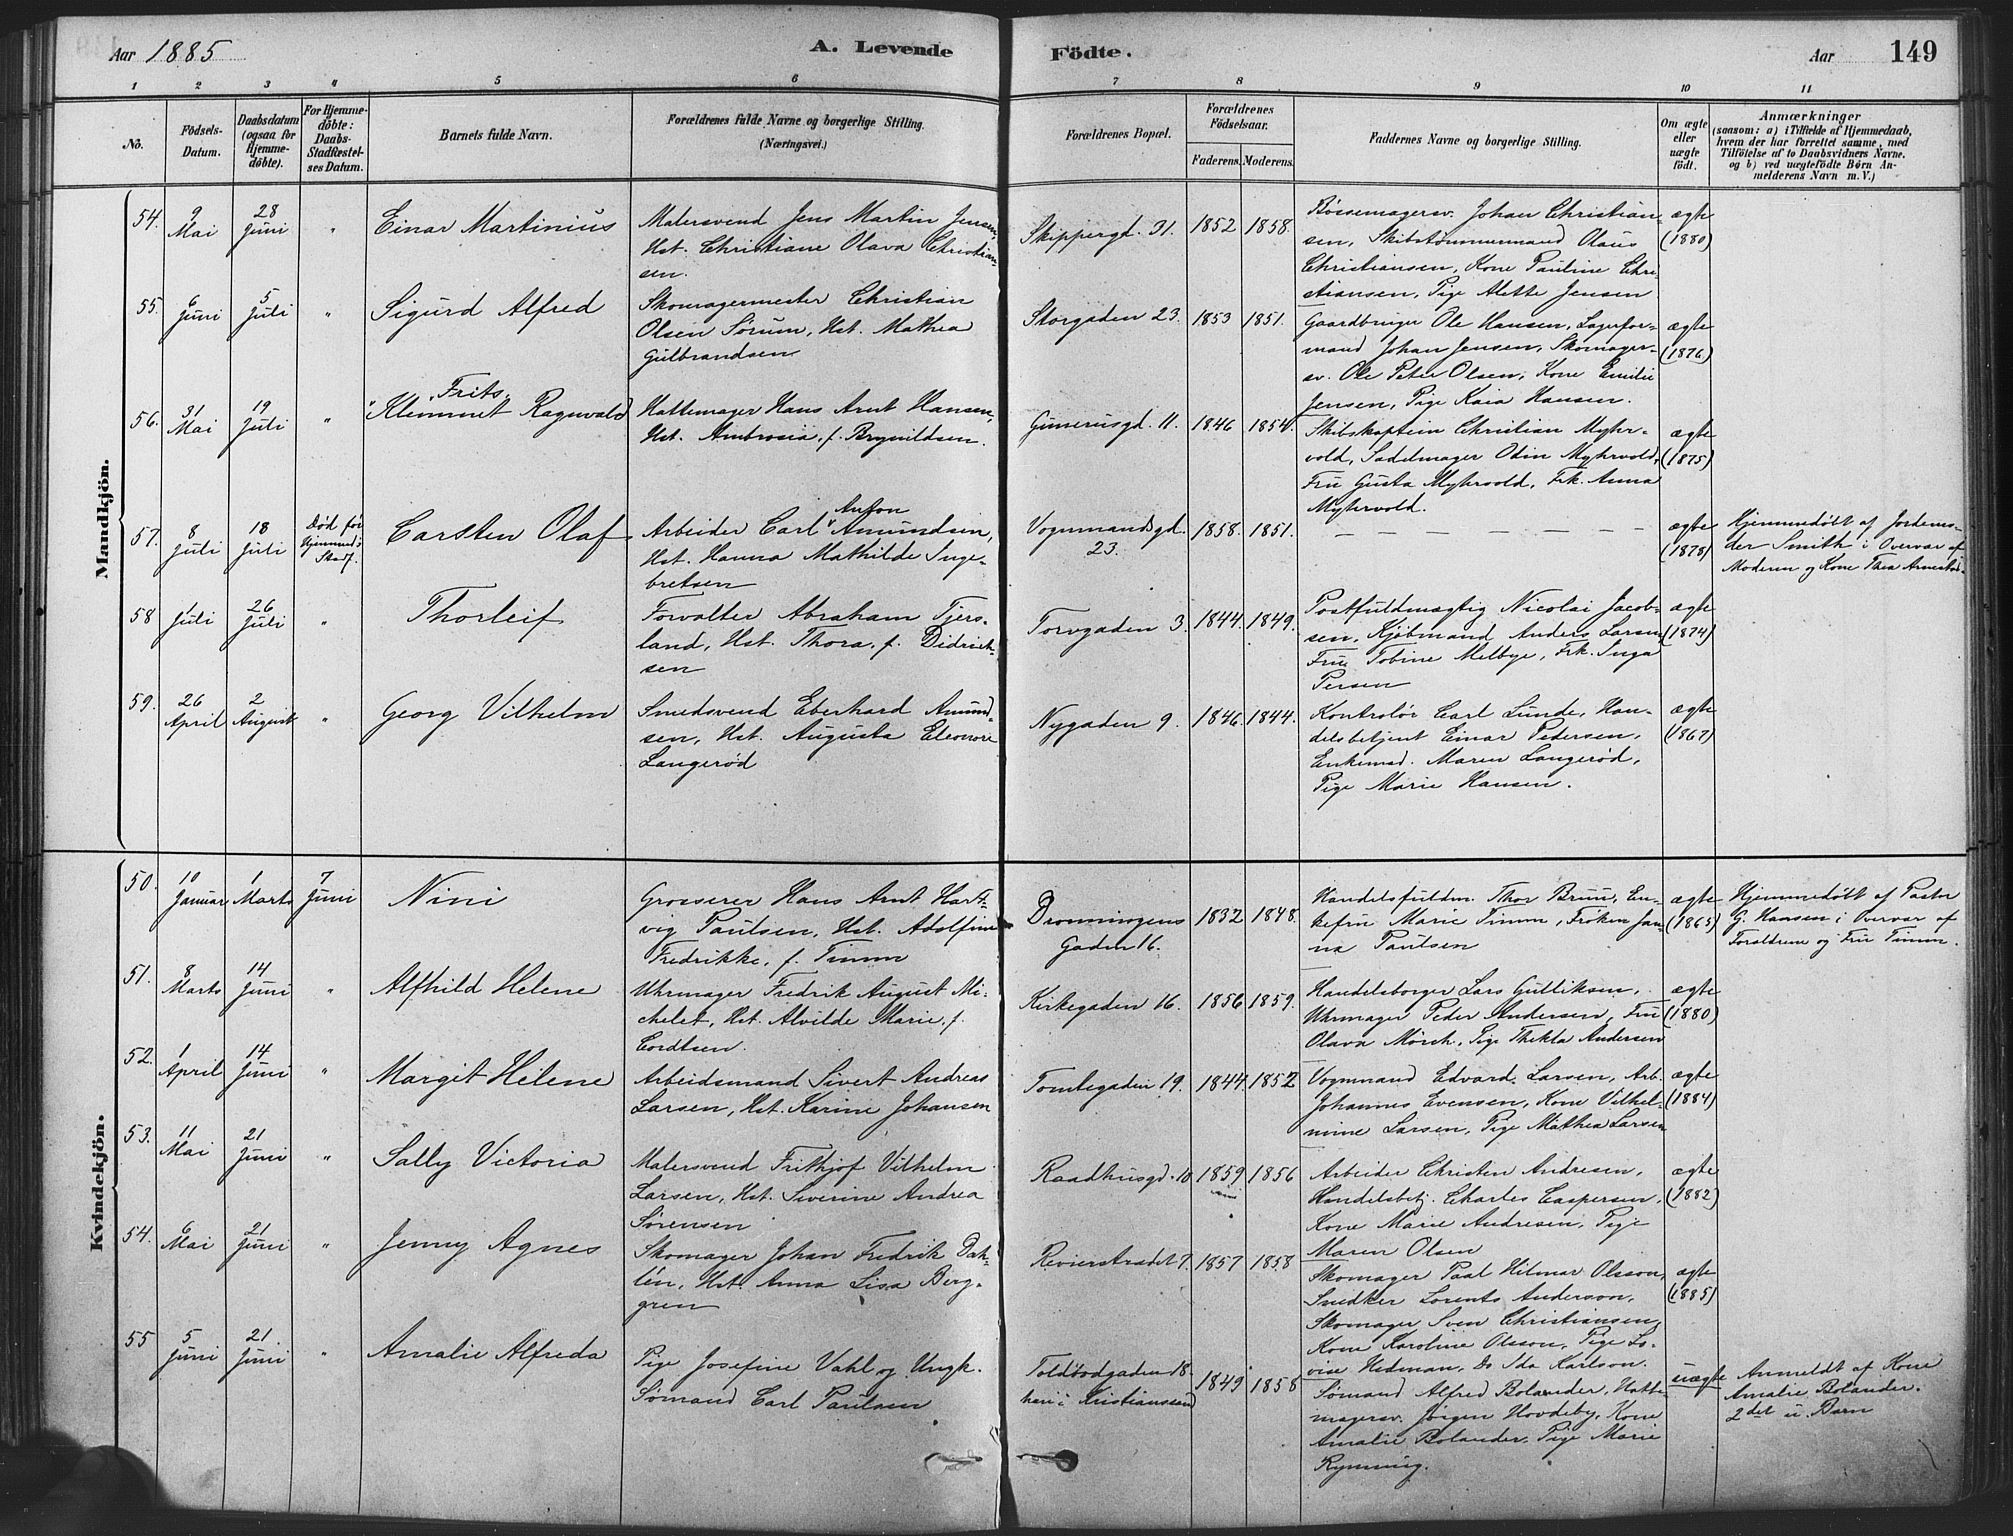 Aar 1885
A. Levende
Födte.
Aar
149
1 2 3 4 5 6 7 8 9 10 11
No.
Födsels-
Datum.
Daabsdatum
(ogsaa for
Hjemme-
döbte).
For Hjemme-
döbte:
Daabs-
Stadfæstel-
ses Datum.
Barnets fulde Navn.
Forældrenes fulde Navne og borgerlige Stilling.
(Næringsvei.)
Forældrenes Bopæl.
Forældrenes
Födselsaar.
Faderens. Moderens.
Faddernes Navne og borgerlige Stilling.
Om ægte
eller
uægte
födt.
Anmærkninger
(saasom: a) i Tilfælde af Hjemmedaab,
hvem der har forrettet samme, med
Tilföielse af to Daabsvidners Navne,
og b) ved uægtefödte Börn An-
melderens Navn m. V.)
Mandkjön.
54. 9 Mai
28 Juni
"
Einar Martinius
Malersvend Jens Martin Jensen,
Hst. Christiane Olava Christian-
sen.
Skippergd. 31.
1852 1858.
Bøssemagersv. Johan Christian-
sen, Skibstømmermand Olaus
Christiansen, Kone Pauline Chri-
stiansen, Pige Alette Jensen
ægte
(1880)
55. 6 Juni
5 Juli
"
Sigurd Alfred
Skomagermester Christian
Olsen Sørum, Hst. Mathea
Gulbrandsen
Storgaden 23.
1853 1851.
Gaardbruger Ole Hansen, Lagerfor-
mand Johan Jensen, Skomager-
sv. Ole Peter Olsen, Kone Emilie
Jensen, Pige Kaia Hansen.
ægte
(1876)
56. 31 Mai
19 Juli
"
Frits
Klemmet Ragnvald
Hattemager Hans Arnt Hansen,
Hst. Ambrosia, f. Brynildsen.
Gunerusgd. 11.
1846 1854.
Skibskaptein Christian Myhr-
vold, Sadelmager Odin Myhrvold,
Fru Gusta Myhrvold, Frk. Anna
Myhrvold.
ægte
(1875)
57. 8 Juli
18 Juli
Død før
Hjemmed.s
Stadf.
Carsten Olaf
Anton
Arbeider Carl Amundsen,
Hst. Hanna Mathilde Inge-
bretsen
Vognmandsgd.
23.
1858. 1851.
— — — — — —
ægte
(1878)
Hjemmedøbt af Jordemo-
der Smith i Overvær af
Moderen og Kone Thea
58 1 Juli
26 Juli
"
Thorleif
Forvalter Abraham Tjers-
land, Hst. Thora, f. Didrich-
sen
Torvgaden 3.
1844. 1849.
Postfuldmægtig Nicolai Jacob-
sen, Kjøbmand Anders Larsen
Fru Tobine Melbye, Frk. Inga
Persen
ægte
(1874)
59. 26 April
2 August
"
Georg Vilhelm
Smedsvend Eberhard Amund-
sen, Hst. Augusta Eleonore
Langerød
Nygaden 9.
1846. 1844.
Kontrolør Carl Lunde, Han-
delsbetjent Einar Pedersen,
Enkemad. Maren Langerød,
Pige Marie Hansen.
ægte
(1867)
Kvindekjön.
50. 10 Januar
1 Marts
7 Juni
Nini
Grosserer Hans Arnt Hart-
vig Paulsen, Hst. Adolfine
Fredrikke, f. Timm
Dronningens
Gaden 16.
1832 1848.
Handelsfuldm. Thor Bruu, En-
kefru Marie Timm, Frøken Jan-
na Paulsen
ægte
(1865)
Hjemmedøbt af Pastor
G. Hansen i Overvær af
Forældrene og Fru Timm.
51. 8 Marts
14 Juni
"
Alfhild Helene
Uhrmager Fredrik August Mi-
chelet, Hst. Alvilde Marie, f.
Cordtsen.
Kirkegaden 16.
1856 1859.
Handelsborger Lars Gulliksen,
Uhrmager Peder Andersen, Fru
Olava Mørch, Pige Thekla Andersen
ægte
(1880)
52. 1 April
14 Juni
"
Margit Helene
Arbeidsmand Sivert Andreas
Larsen, Hst. Karine Johansen
Tomtegaden 19.
1844. 1852
Vognmand Edvard Larsen, Arb.
Johannes Evensen, Kone Vilhel-
mine Larsen, Pige Mathea Larsen
ægte
(1884)
53. 11 Mai
21 Juni
"
Sally Victoria
Malersvend Frithjof Vilhelm
Larsen, Hst. Severine Andrea
Sørensen
Raadhusgd. 10
1859 1856
Arbeider Christen Andresen,
Handelsbetj. Charles Caspersen,
Kone Marie Andresen, Pige
Maren Olsen
ægte
(1882)
54. 6 Mai
21 Juni
"
Jenny Agnes
Skomager Johan Fredrik Dah-
lén, Hst. Anna Lisa Berg-
gren
Revierstrædet 7.
1857 1858
Skomager Paal Hilmar Olsson,
Snedker Lorents Anderson,
Skomager Sven Christiansen,
Kone Karoline Olsson, Pige Lo-
vise Hedman, Do Ida Karlson.
ægte
(1885)
55 5 Juni
21 Juni
"
Amalie Alfreda
Pige Josefine Vahl og Ungk.
Sømand Carl Paulsen
Toldbodgaden 18.
han i Kristianssand
1849 1858
Sømand Alfred Bolander, Hatte-
magersv. Jørgen Hovdeby, Kone
Amalie Bolander, Pige Marie
Rynning.
uægte
Anmeldt af Kone
Amalie Bolander.
2det u. Barn